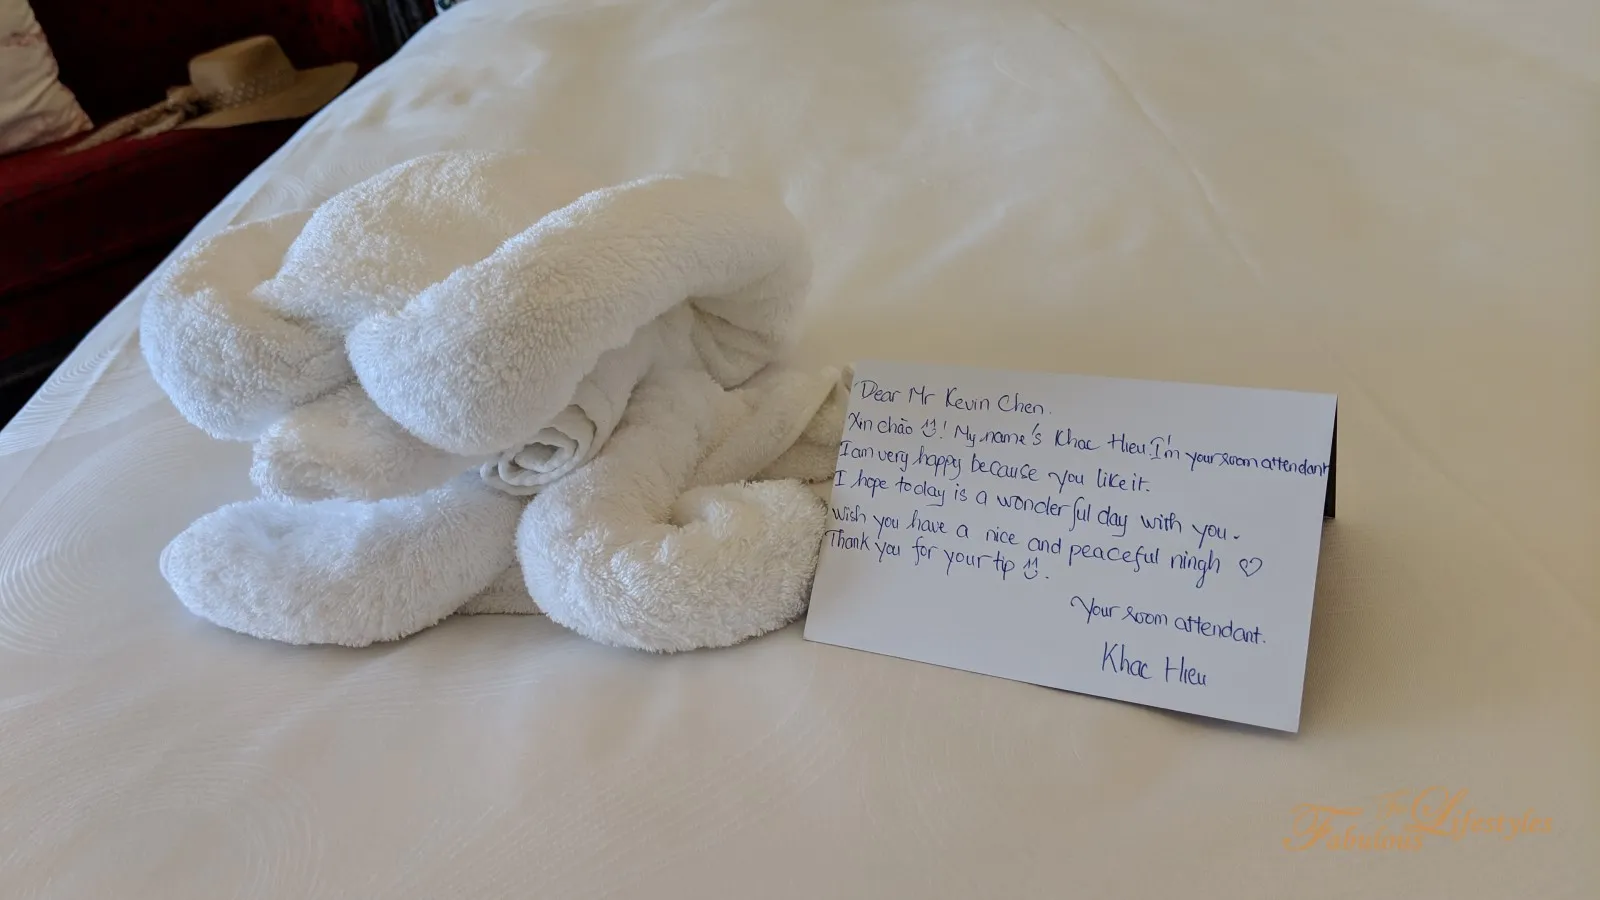 Dear Mr Kevin Chen.
Xin chào ! My name's Khac Hieu. I'm your room attendant
I am very happy because you like it.
I hope today is a wonderful day with you.
wish you have a nice and peaceful ningh ♡
Thank you for your tip .
Your room attendant.
Khac Hieu
The Fabulous Lifestyles